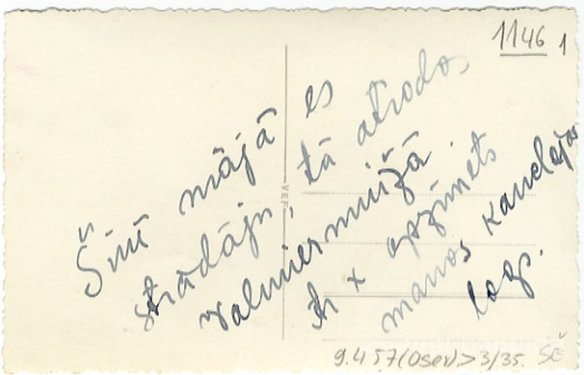 1146 1
Šinī mājā es
strādāju, tā atrodas
Valmiermuižā
Ar x apzīmēts
manas kancelejas
logs.
VEF
9.457(Oserv.>3/35. SĒ